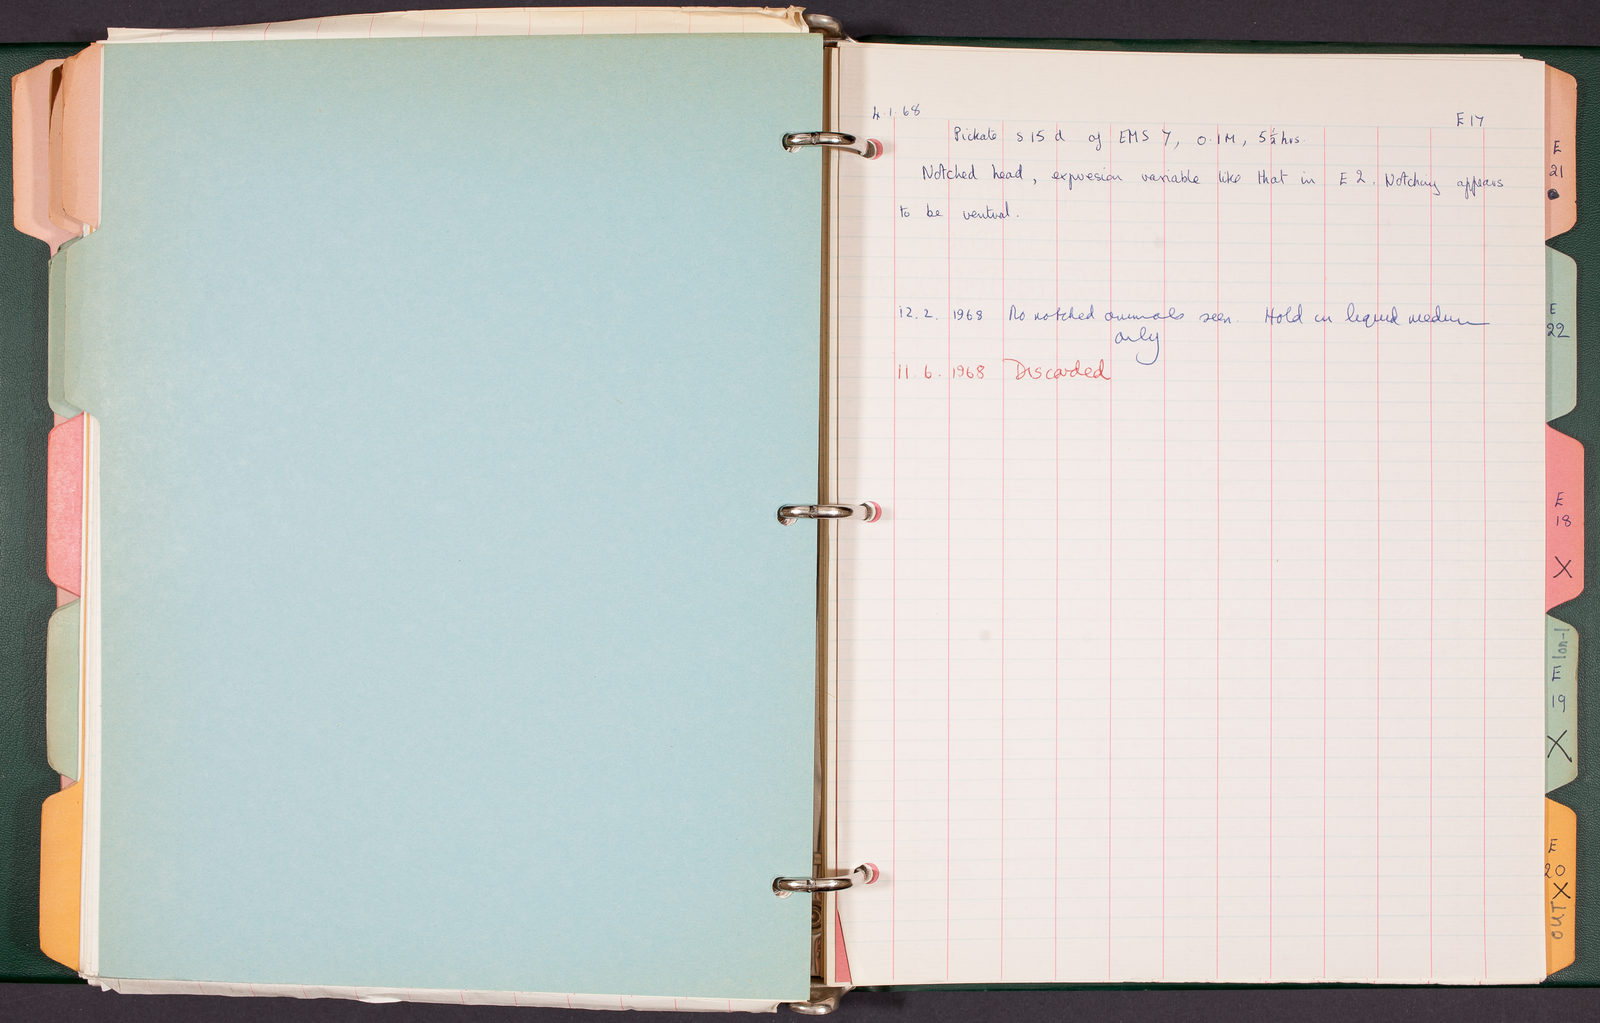 4.1.68
E 17
Pickate S 15 d of EMS 7, 0.1M, 5½ hrs.
Notched head, expression variable like that in E 2. Notching appears
to be ventral.
12.2. 1968 No notched animals seen. Hold in liquid medium
only
11.6.1968 Discarded
E
21
E
22
E
18
X
lon-1
E
19
X
E
20
X
OUT